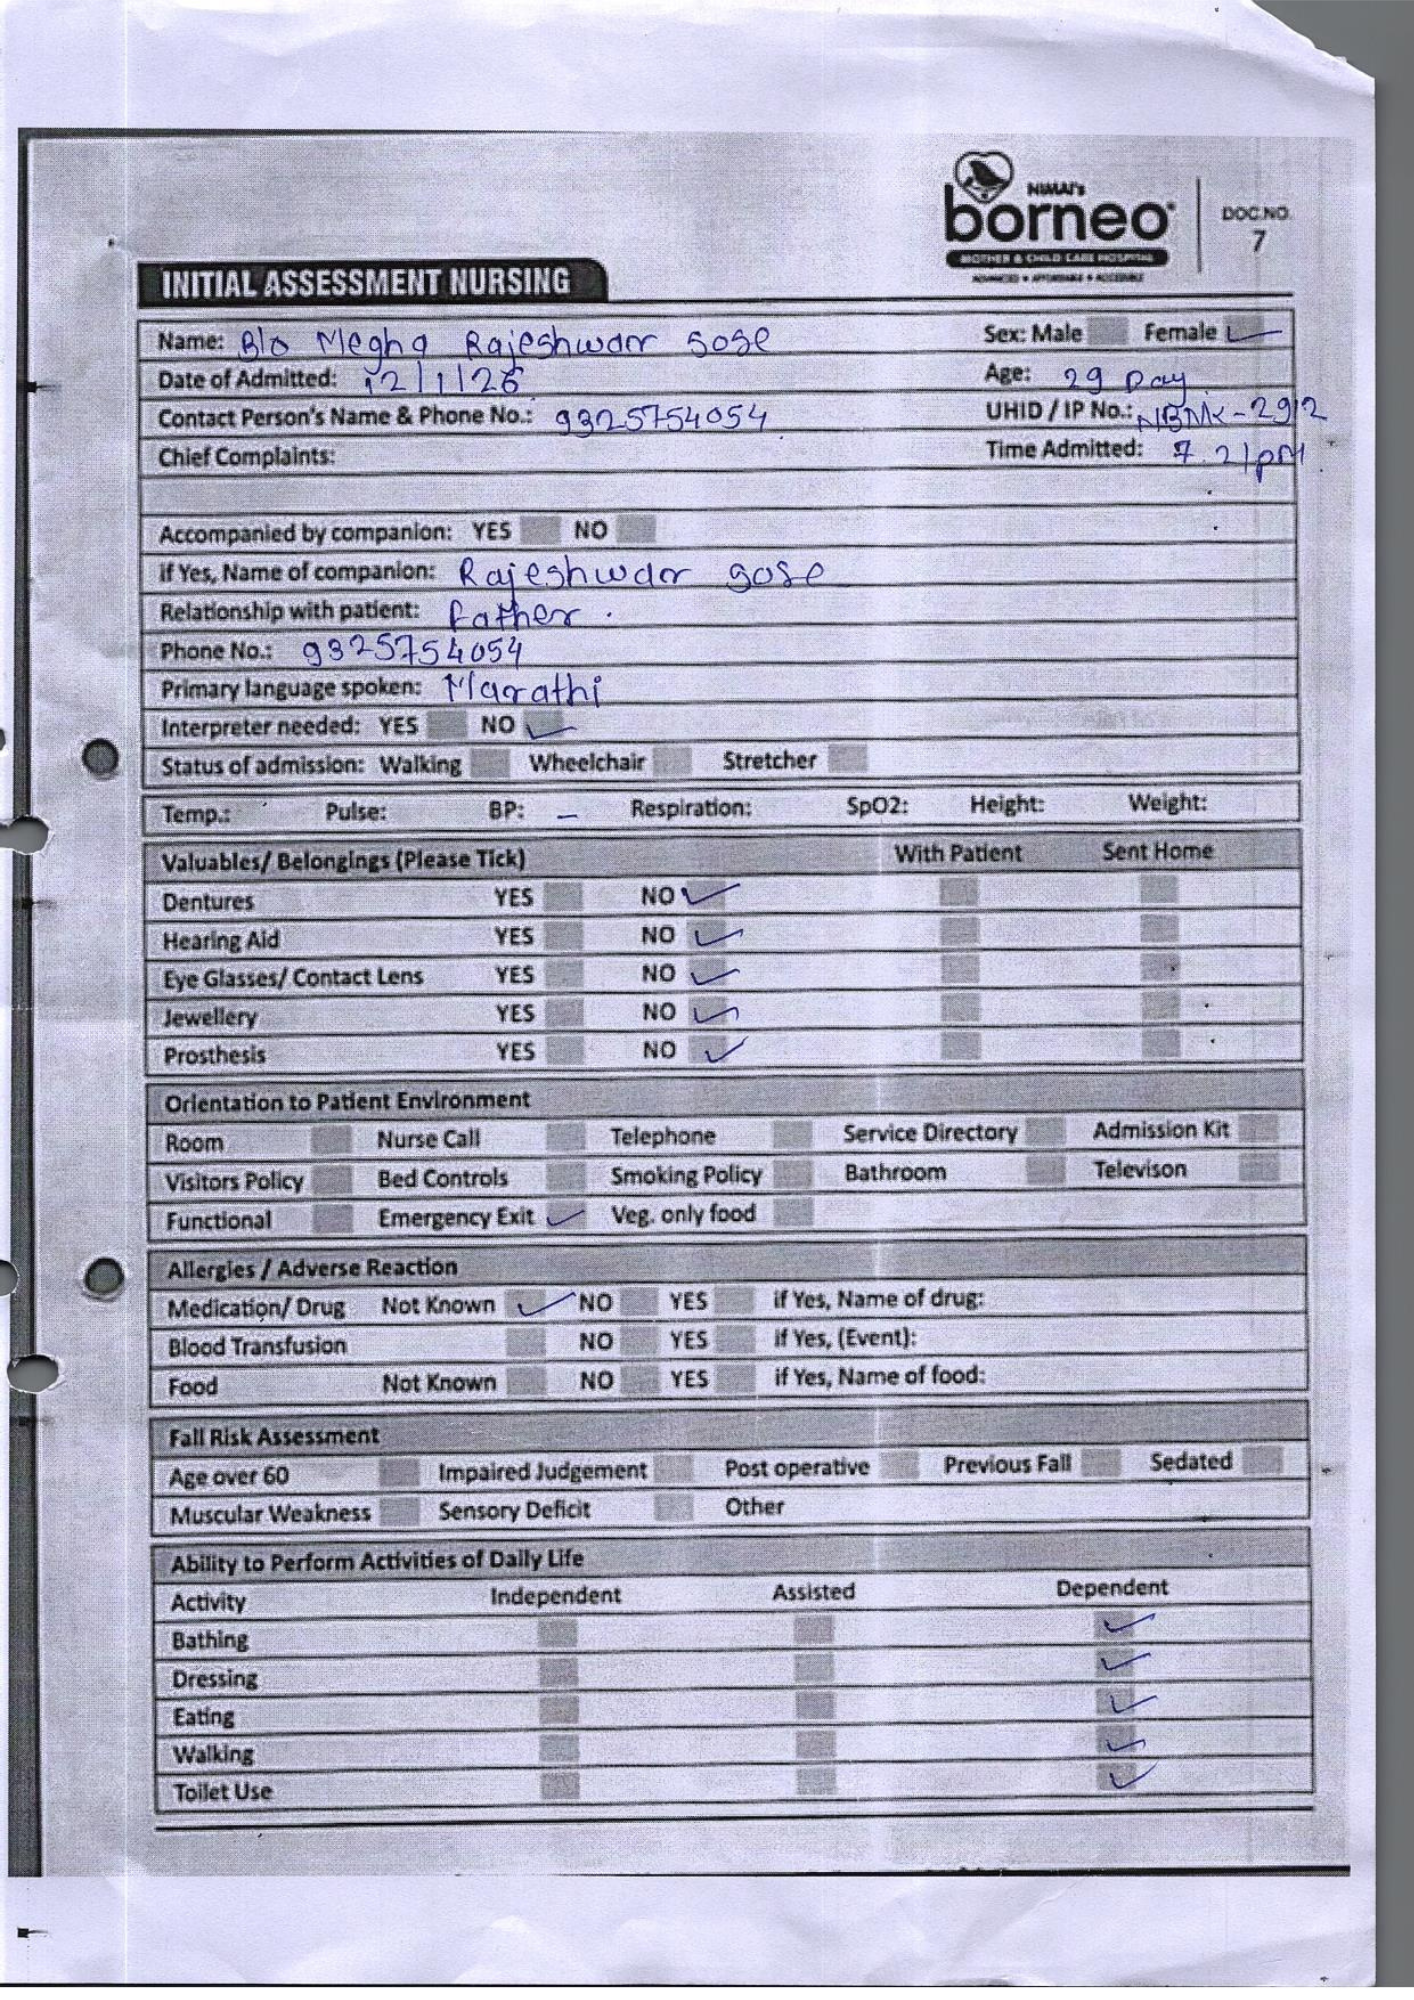 NIMAI's
borneo
MOTHER & CHILD CARE HOSPITAL
ADVANCED • AFFORDABLE • ACCESSIBLE
DOC.NO.
7
INITIAL ASSESSMENT NURSING
Name: B/o Megha Rajeshwar Gose Sex: Male Female ✓
Date of Admitted: 12/1/26 Age: 29 Day
Contact Person's Name & Phone No.: 9325754054 UHID / IP No.: NBMK-2912
Chief Complaints: Time Admitted: 7.21pM
Accompanied by companion: YES NO
if Yes, Name of companion: Rajeshwar gose
Relationship with patient: Father.
Phone No.: 9325754054
Primary language spoken: Marathi
Interpreter needed: YES NO ✓
Status of admission: Walking Wheelchair Stretcher
Temp.: Pulse: BP: – Respiration: SpO2: Height: Weight:
Valuables/ Belongings (Please Tick) With Patient Sent Home
Dentures YES NO ✓
Hearing Aid YES NO ✓
Eye Glasses/ Contact Lens YES NO ✓
Jewellery YES NO ✓
Prosthesis YES NO ✓
Orientation to Patient Environment
Room Nurse Call Telephone Service Directory Admission Kit
Visitors Policy Bed Controls Smoking Policy Bathroom Televison
Functional Emergency Exit ✓ Veg. only food
Allergies / Adverse Reaction
Medication/ Drug Not Known ✓ NO YES if Yes, Name of drug:
Blood Transfusion NO YES if Yes, (Event):
Food Not Known NO YES if Yes, Name of food:
Fall Risk Assessment
Age over 60 Impaired Judgement Post operative Previous Fall Sedated
Muscular Weakness Sensory Deficit Other
Ability to Perform Activities of Daily Life
Activity Independent Assisted Dependent
Bathing ✓
Dressing ✓
Eating ✓
Walking ✓
Toilet Use ✓